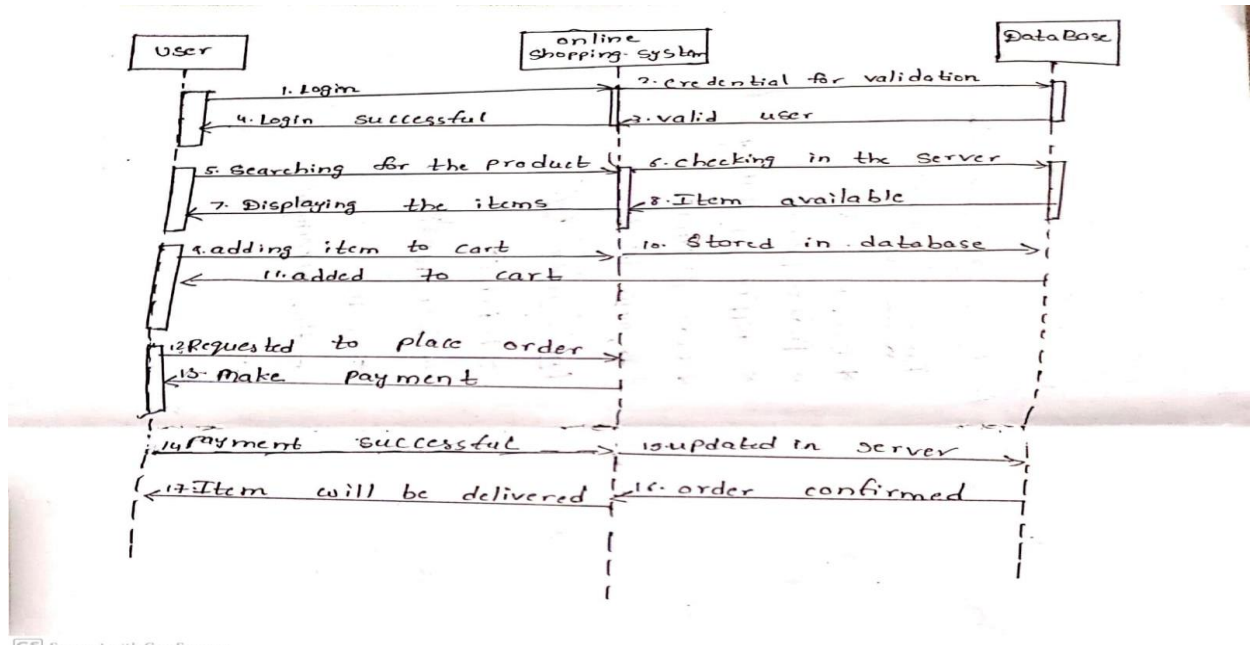 User
online
Shopping-System
DataBase
1. Login
2. Credential for validation
4. Login successful
3. valid user
5. Searching for the product
6. checking in the server
7. Displaying the items
8. Item available
9. adding item to cart
10. Stored in database
11. added to cart
12. Requested to place order
13. Make payment
14. Payment successful
15. updated in server
17. Item will be delivered
16. order confirmed